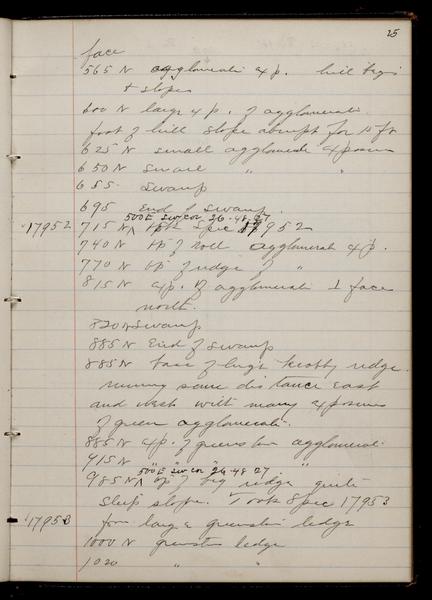 25
face
565 N agglomerate exp. hill begins
& slopes
600 N large exp. of agglomerate
foot of hill slope abrupt for 15 ft
625 N small agglomerate exposure
650 N small " "
655 - Swamp
695 End of Swamp.
500 E SW cor 26-48-27
17952 715 N Spec 17952
740 N top of knoll agglomerate exp.
770 N top of ridge of "
815 N exp. of agglomerate face
north.
820 N Swamp
885 N End of Swamp
885 N base of high knobby ridge.
running some distance East
and West with many exposures
of green agglomerate.
885 N exp. of greenston agglomerate
915 N " "
500 E " SW cor " 26-48-27
985 N top of big ridge quite
steep slope. Took Spec 17953
17953 from large greenston ledge
1000 N greenston ledge
1020 " "